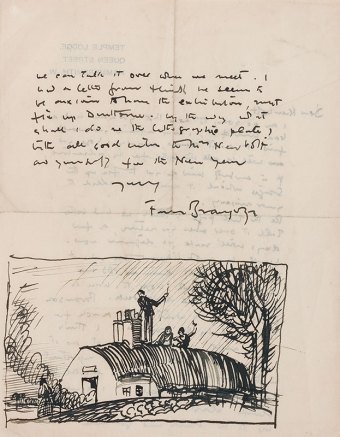 TEMPLE LODGE
QUEEN STREET
we can talk it over when we meet. I
had a letter from he seems to
be anxious to have the exhibition, must
fix up . By the way what
shall I do as the lithographic plate,
with all good wishes to Mrs Newbolt
and yourself for the New Year
yours
Frank Brangwyn